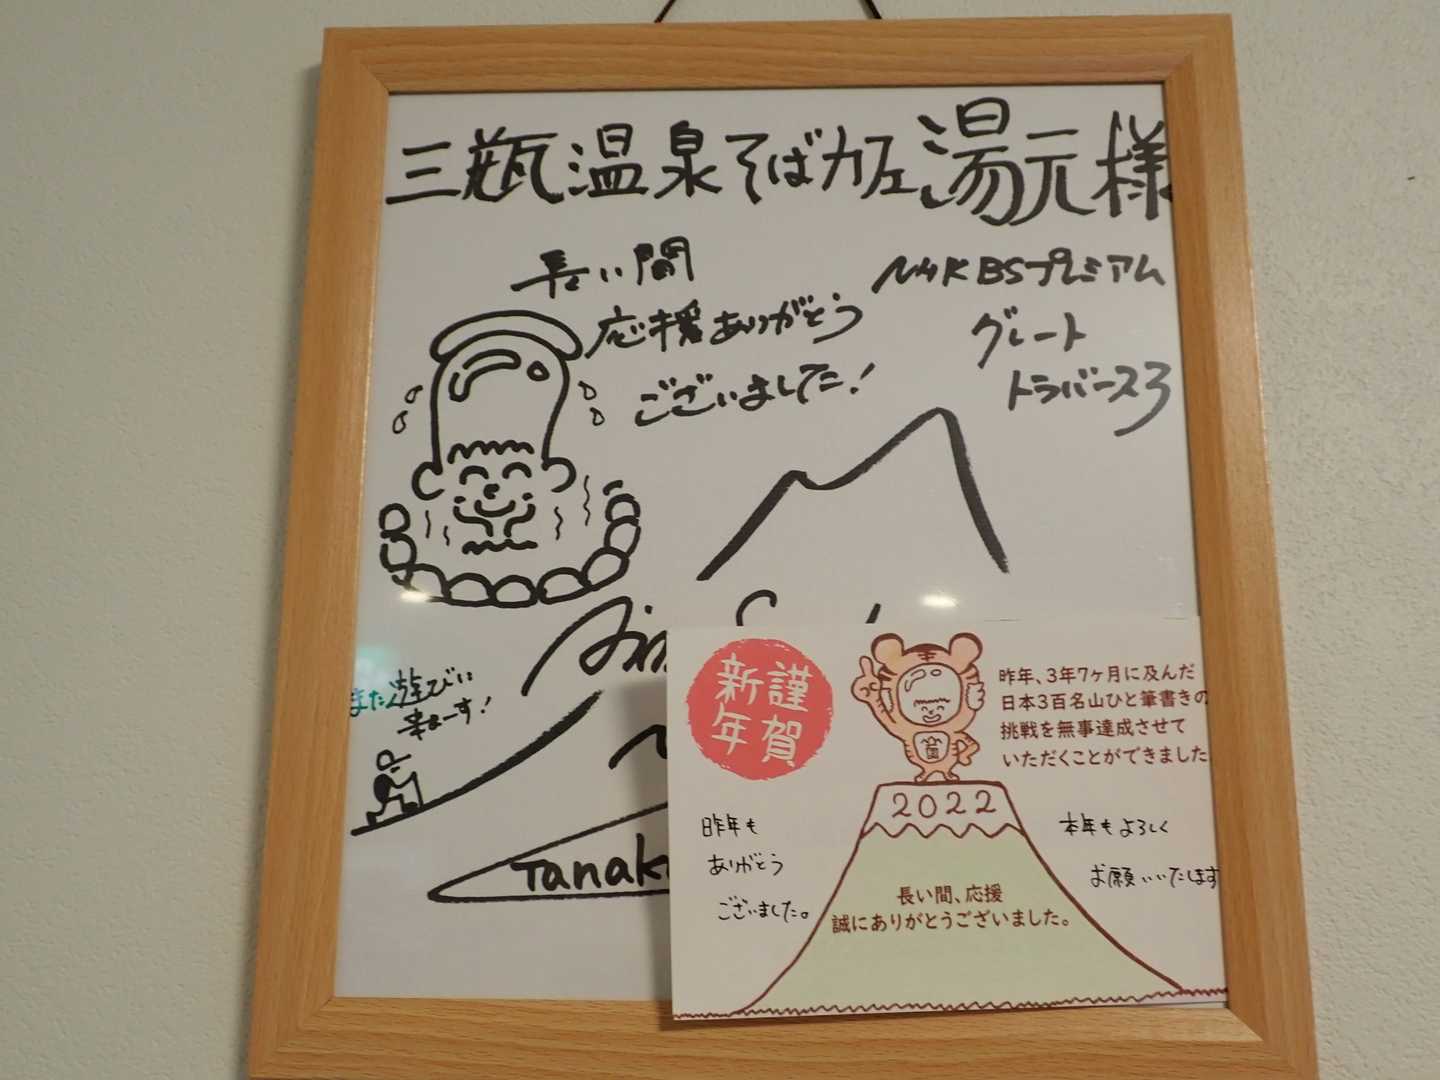 三瓶温泉そばカフェ湯元様
長い間
応援ありがとう
ございました!
NHK BSプレミアム
グレート
トラバース3
また遊びに
来まーす!
Tanak
謹賀
新年
昨年、3年7ヶ月に及んだ
日本3百名山ひと筆書きの
挑戦を無事達成させて
いただくことができました
2022
昨年も
ありがとう
ございました。
本年もよろしく
お願いいたします
長い間、応援
誠にありがとうございました。